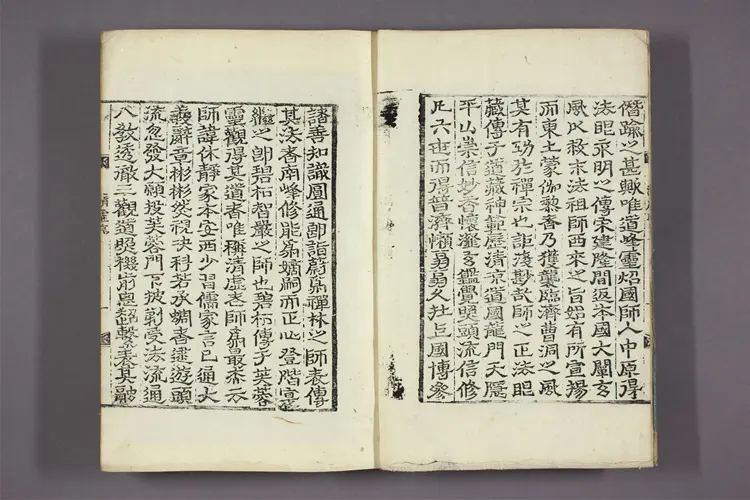 僭踰之甚歟唯道峰靈炤國師入中原得
法眼永明之傳宋建隆間返本國大闡玄
風以救末法祖師西來之旨始有所宣揚
而東土蒙伽黎者乃獲襲臨濟曹洞之風
其有功於禪宗也詎淺尠哉師之正法眼
藏傳于道藏神範歷淸凉道國龍門天隱
平山崇信妙香懷瀣玄鑑覺照頭流信修
凡六世而得普濟懶翁翁久在上國博參
諸善知識圓通卽詣蔚爲禪林之師表傳
其法者南峰修能爲嫡嗣而正心登階寔
繼之卽碧松智嚴之師也碧松傳于芙蓉
靈觀得其道者唯稱淸虛老師爲最杰云
師諱休靜家本安西少習儒家言已通大
義辭章彬彬然視決科若承蜩者遂遊頭
流忽發大願投芙蓉門下披剃受法流通
八敎透徹三觀道照機前思超繫表其融